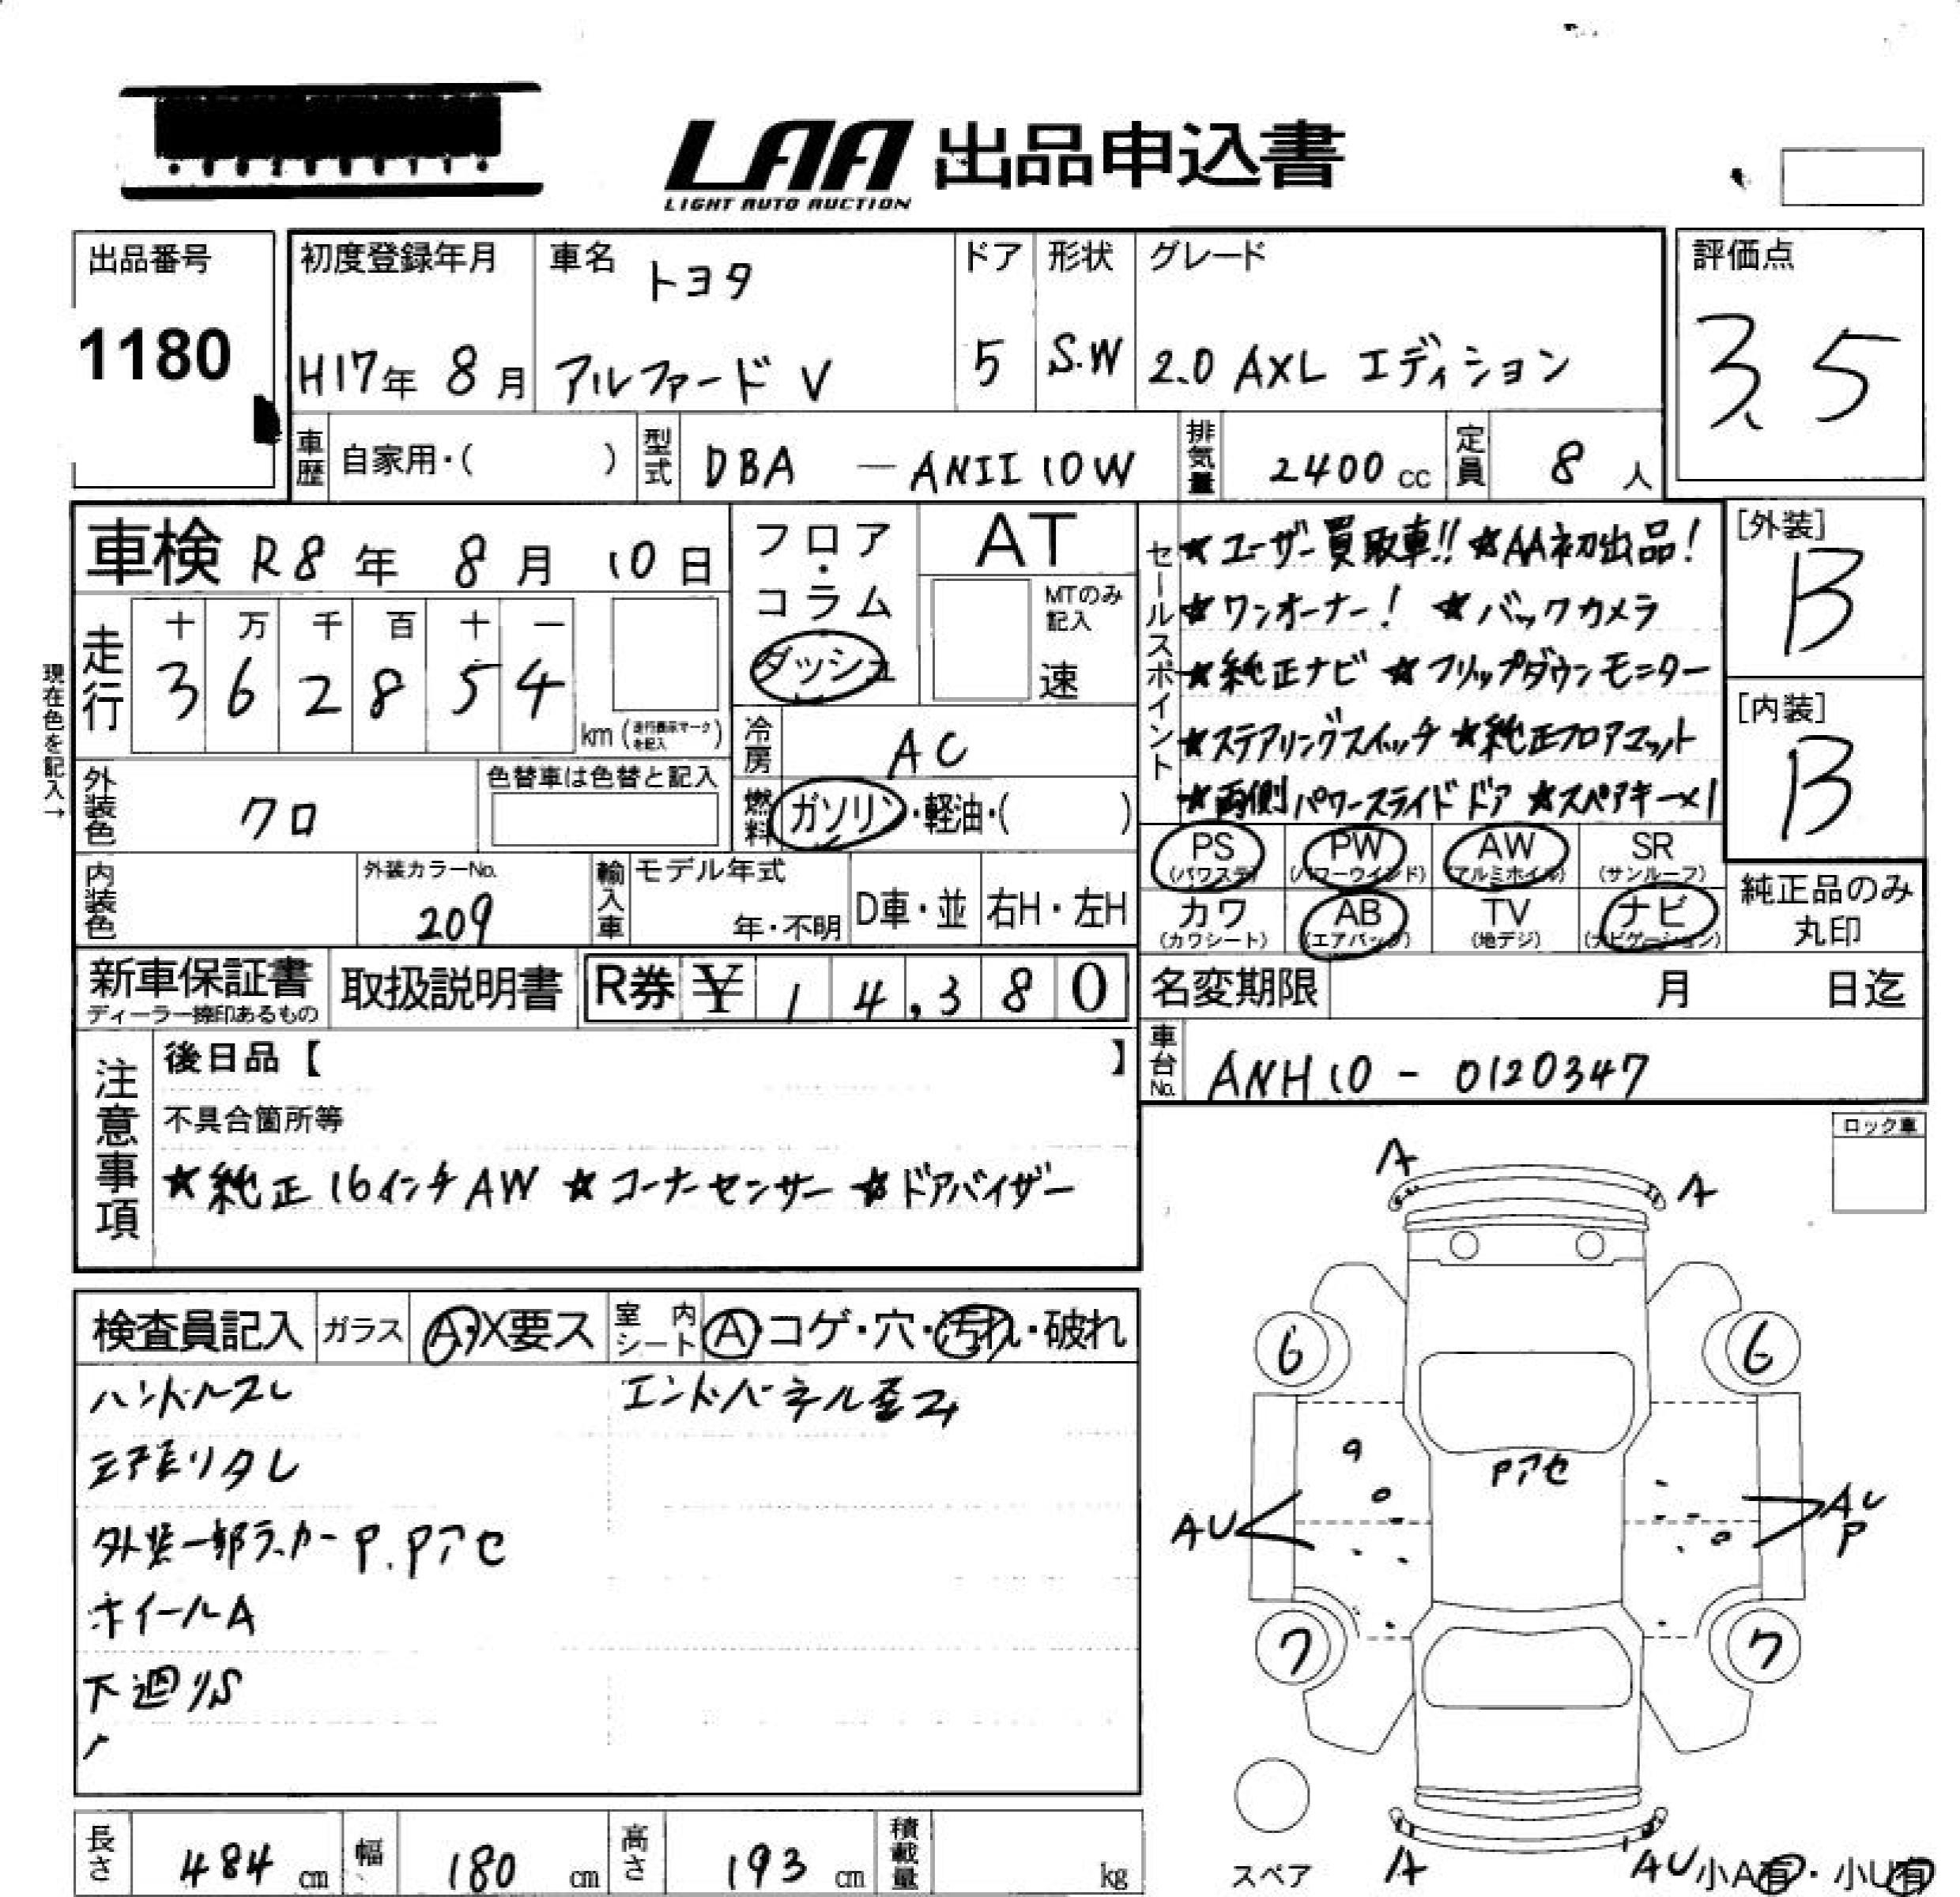 LAA 出品申込書
LIGHT AUTO AUCTION
出品番号
1180
初度登録年月
H17年 8月
車名 トヨタ
アルファード V
ドア
5
形状
S.W
グレード
2.0 AXL エディション
評価点
3.5
車歴 自家用・( )
型式 DBA — ANH10W
排気量 2400 cc
定員 8 人
車検 R8年 8月 10日
走行
十 万 千 百 十 一
3 6 2 8 5 4
km (走行表示マークを記入)
現在色を記入→
フロア・コラム
ダッシュ
AT
MTのみ記入
速
冷房 AC
燃料 ガソリン・軽油・( )
外装色 クロ
色替車は色替と記入
内装色
外装カラーNo.
209
輸入車
モデル年式
年・不明
D車・並
右H・左H
セールスポイント
★ユーザー買取車!! ★AA初出品!
★ワンオーナー! ★バックカメラ
★純正ナビ ★フリップダウンモニター
★ステアリングスイッチ ★純正フロアマット
★両側パワースライドドア ★スペアキー×1
[外装]
B
[内装]
B
PS (パワステ)
PW (パワーウインド)
AW (アルミホイル)
SR (サンルーフ)
カワ (カワシート)
AB (エアバック)
TV (地デジ)
ナビ (ナビゲーション)
純正品のみ
丸印
新車保証書
ディーラー捺印あるもの
取扱説明書
R券 ¥ 14,380
名変期限 月 日迄
車台No. ANH10 - 0120347
注意事項
後日品【 】
不具合箇所等
★純正16インチAW ★コーナーセンサー ★ドアバイザー
ロック車
検査員記入
ガラス A・X要ス
室内シート A・コゲ・穴・汚れ・破れ
ハンドルスレ
エンドパネル歪み
天張りタレ
外装一部ラッカーP.Pアセ
ホイールA
下廻りS
A
A
6
6
Pアセ
AU
AU
P
7
7
スペア
A
AU
小A有・小U有
長さ 484 cm
幅 180 cm
高さ 193 cm
積載量 kg